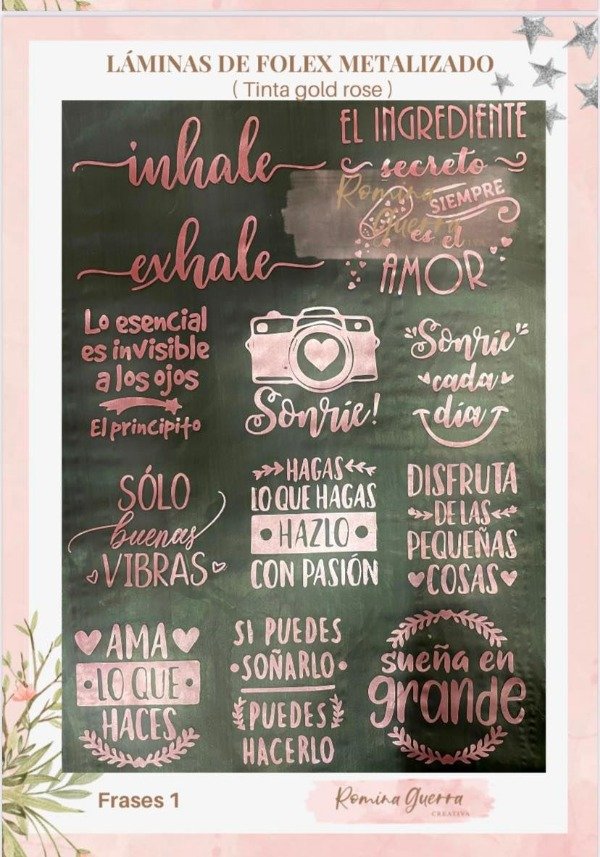 LÁMINAS DE FOLEX METALIZADO
( Tinta gold rose )
inhale
exhale
EL INGREDIENTE
secreto
SIEMPRE
es el
AMOR
Romina
Guerra
Lo esencial
es invisible
a los ojos
El principito
Sonríe!
Sonríe
cada
día
SÓLO
buenas
VIBRAS
HAGAS
LO QUE HAGAS
HAZLO
CON PASIÓN
DISFRUTA
DE LAS
PEQUEÑAS
COSAS
AMA
LO QUE
HACES
SI PUEDES
SOÑARLO
PUEDES
HACERLO
sueña en
grande
Frases 1
Romina Guerra
CREATIVA